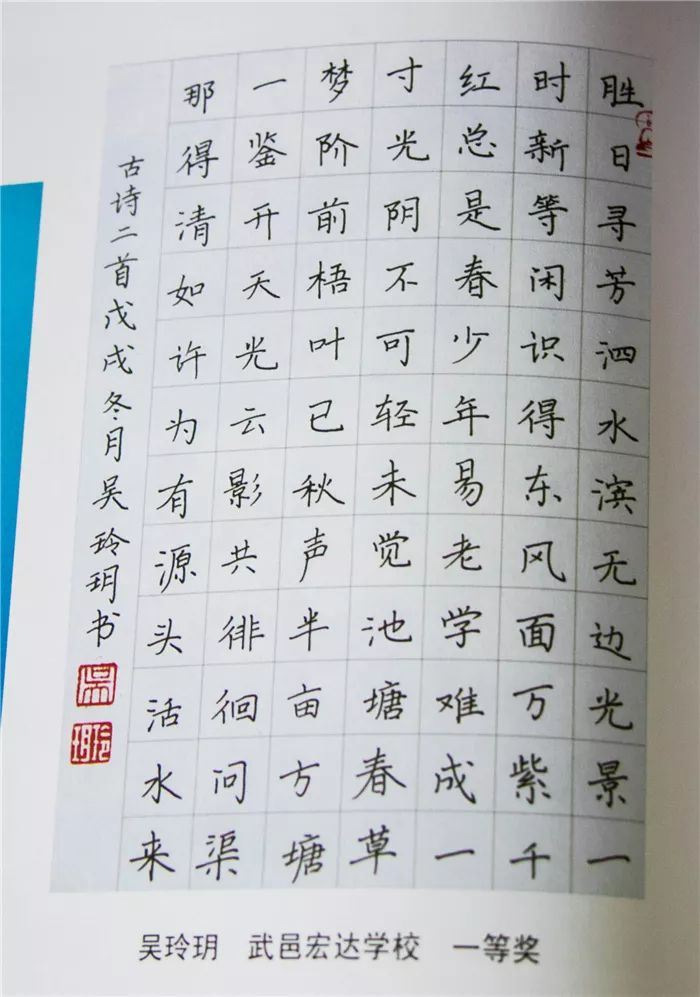 胜日寻芳泗水滨无边光景一
时新等闲识得东风面万紫千
红总是春少年易老学难成一
寸光阴不可轻未觉池塘春草
梦阶前梧叶已秋声半亩方塘
一鉴开天光云影共徘徊问渠
那得清如许为有源头活水来
古诗二首戊戌冬月吴玲玥书
吴
玲玥
吴玲玥 武邑宏达学校 一等奖